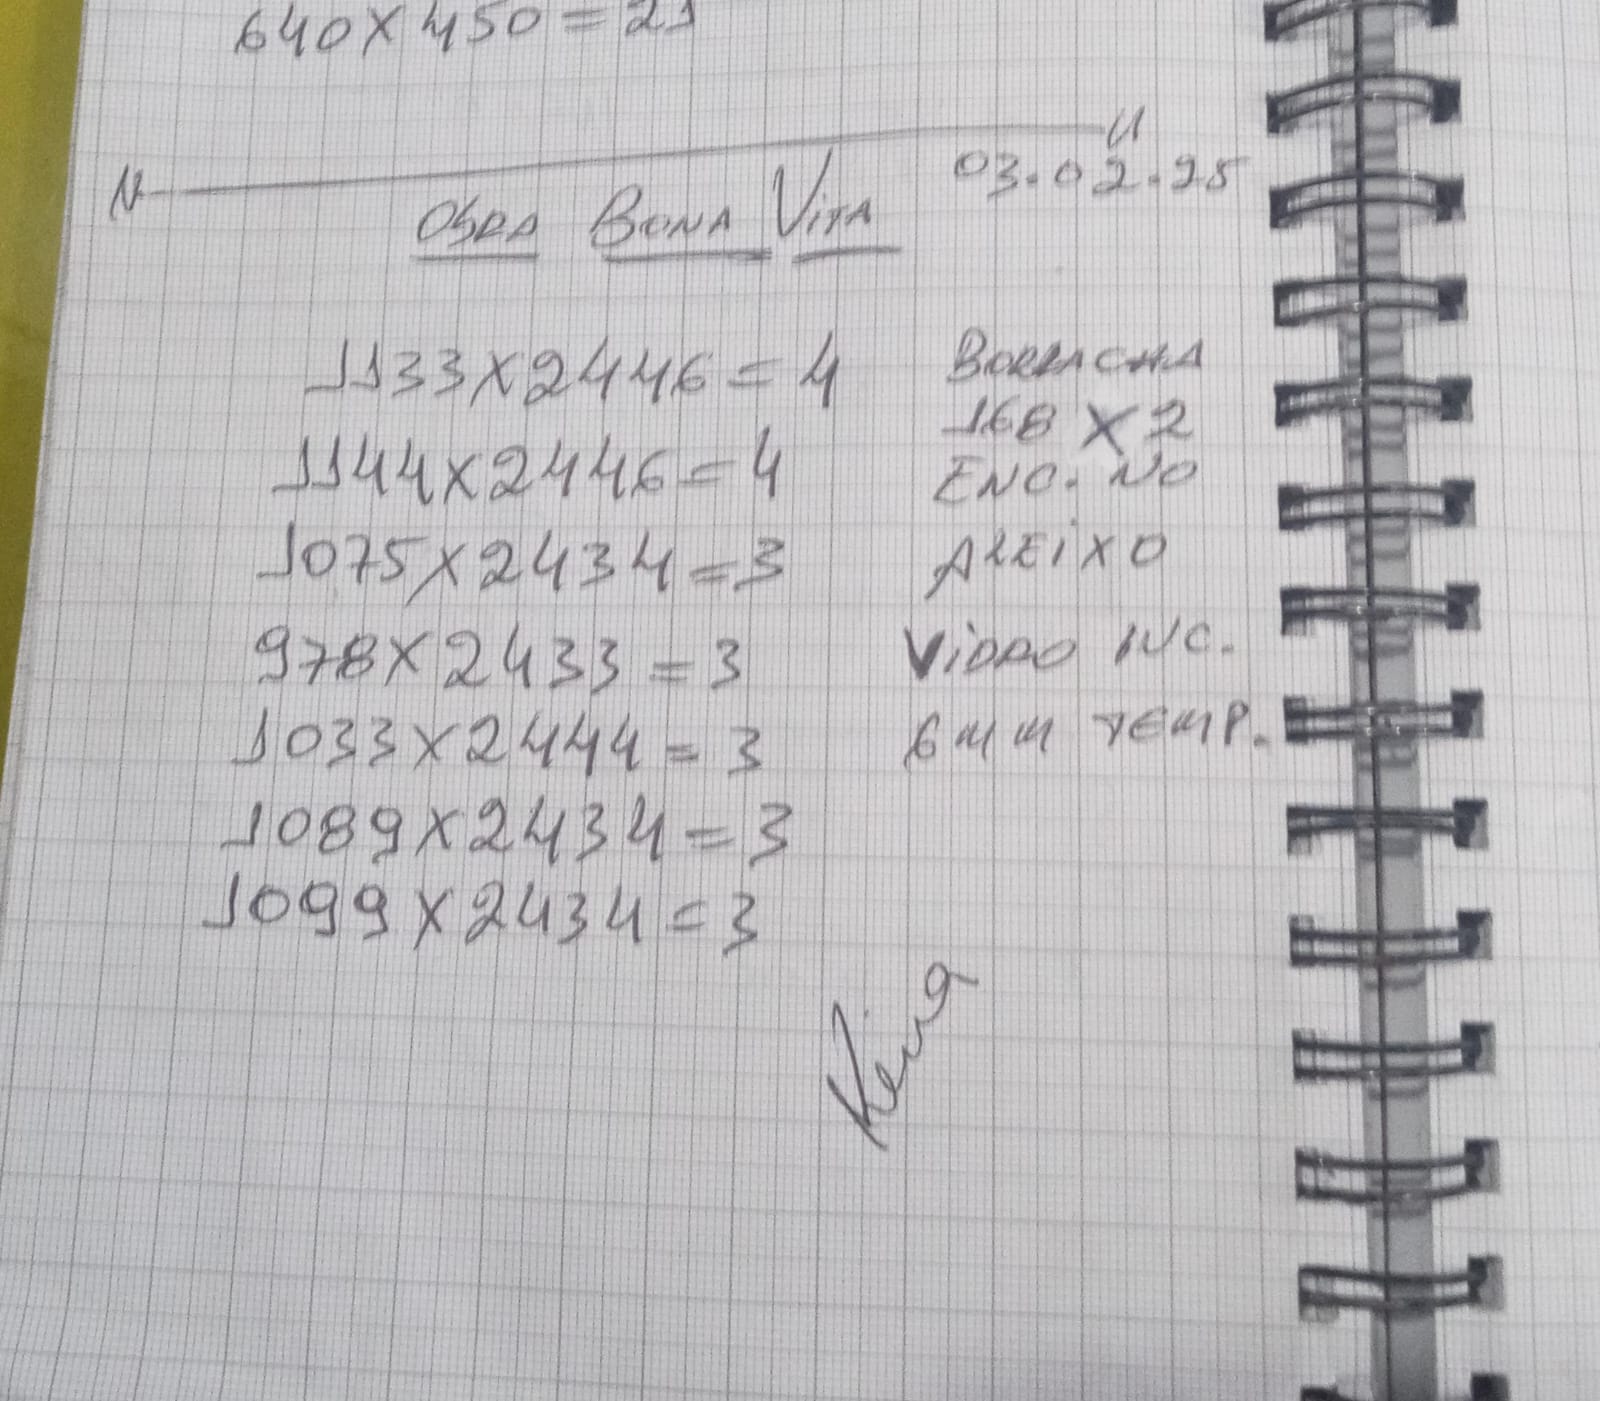 640X450=21
03.02.25
OBRA BONA VITA
1133X2446=4 BORRACHA
168 X 2
1144X2446=4 ENC. NO
1075X2434=3 ALEIXO
978X2433=3 VIDRO INC.
1033X2444=3 6MM TEMP.
1089X2434=3
1099X2434=3